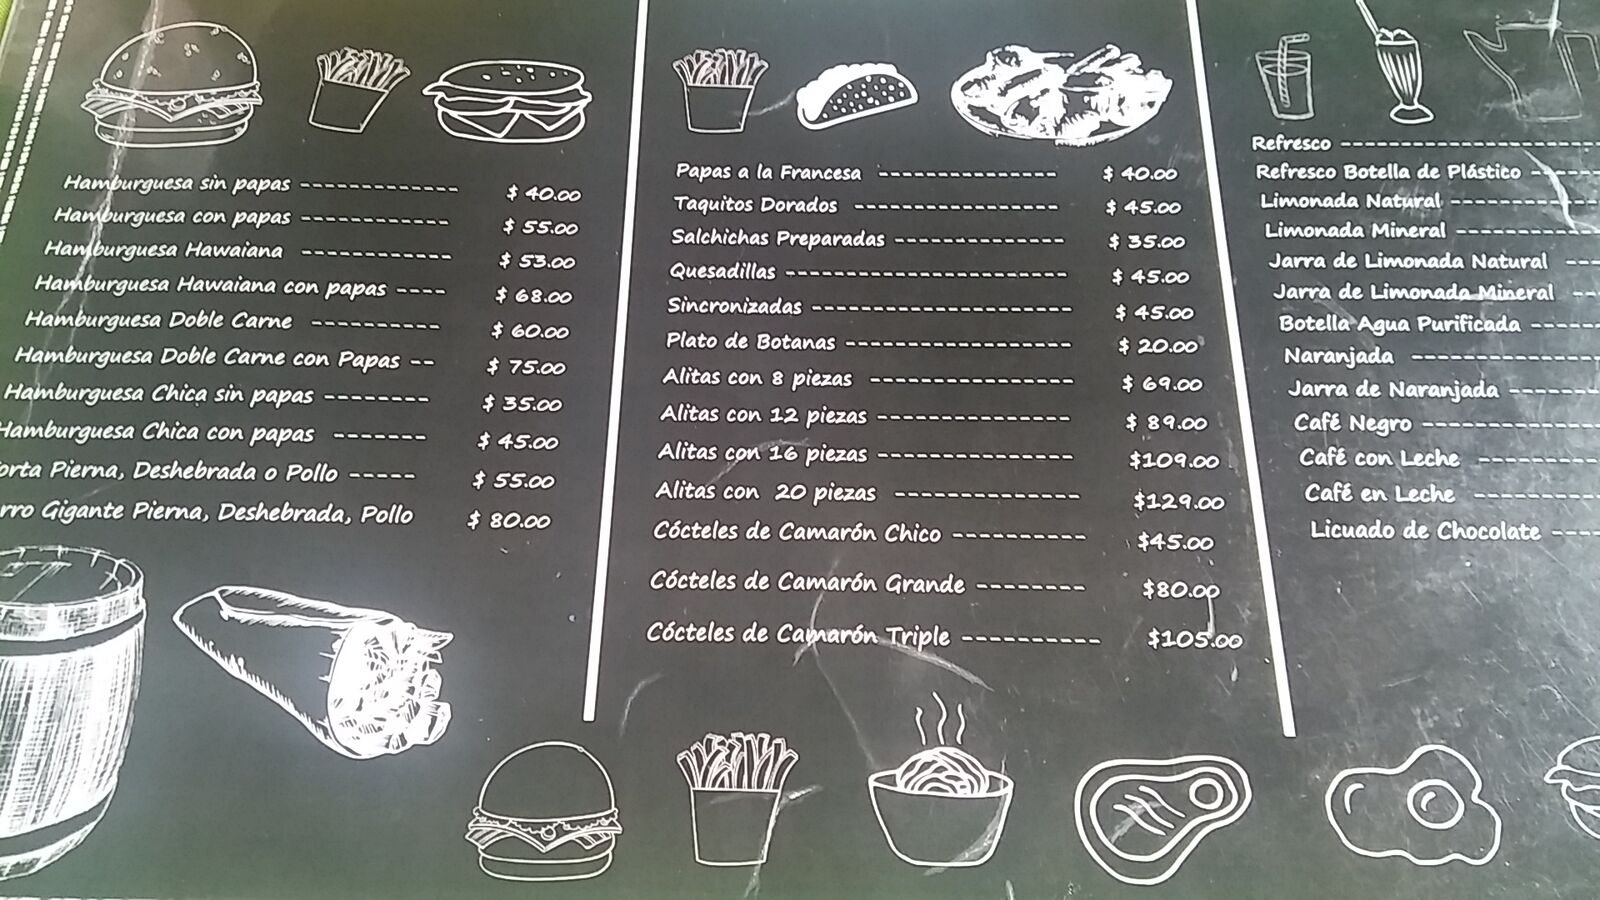 Hamburguesa sin papas ------------- $ 40.00
Hamburguesa con papas ------------ $ 55.00
Hamburguesa Hawaiana ------------ $ 53.00
Hamburguesa Hawaiana con papas ---- $ 68.00
Hamburguesa Doble Carne ---------- $ 60.00
Hamburguesa Doble Carne con Papas -- $ 75.00
Hamburguesa Chica sin papas -------- $ 35.00
Hamburguesa Chica con papas ------- $ 45.00
orta Pierna, Deshebrada o Pollo ----- $ 55.00
rro Gigante Pierna, Deshebrada, Pollo $ 80.00
Papas a la Francesa --------------- $ 40.00
Taquitos Dorados ----------------- $ 45.00
Salchichas Preparadas -------------- $ 35.00
Quesadillas ----------------------- $ 45.00
Sincronizadas --------------------- $ 45.00
Plato de Botanas ------------------ $ 20.00
Alitas con 8 piezas ---------------- $ 69.00
Alitas con 12 piezas --------------- $ 89.00
Alitas con 16 piezas --------------- $109.00
Alitas con 20 piezas -------------- $129.00
Cócteles de Camarón Chico ---------- $45.00
Cócteles de Camarón Grande -------- $80.00
Cócteles de Camarón Triple ---------- $105.00
Refresco --------------------
Refresco Botella de Plástico --
Limonada Natural -----------
Limonada Mineral -----------
Jarra de Limonada Natural ---
Jarra de Limonada Mineral --
Botella Agua Purificada -----
Naranjada --------------
Jarra de Naranjada -------
Café Negro -------------
Café con Leche ---------
Café en Leche ---------
Licuado de Chocolate ----